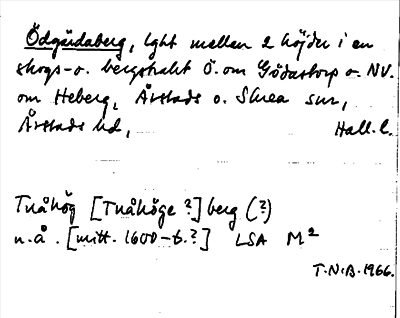 Ödgärdaberg, lght mellan 2 höjder i en
skogs- o. bergstrakt Ö. om Gödastorp o. NV.
om Heberg, Årstads o. Skrea snr,
Årstads hd, Hall. l.
Tvåhög [Tvåhöge ?] berg (?)
u.å. [mitt. 1600-t.?] LSA M²
T.N.B. 1966.